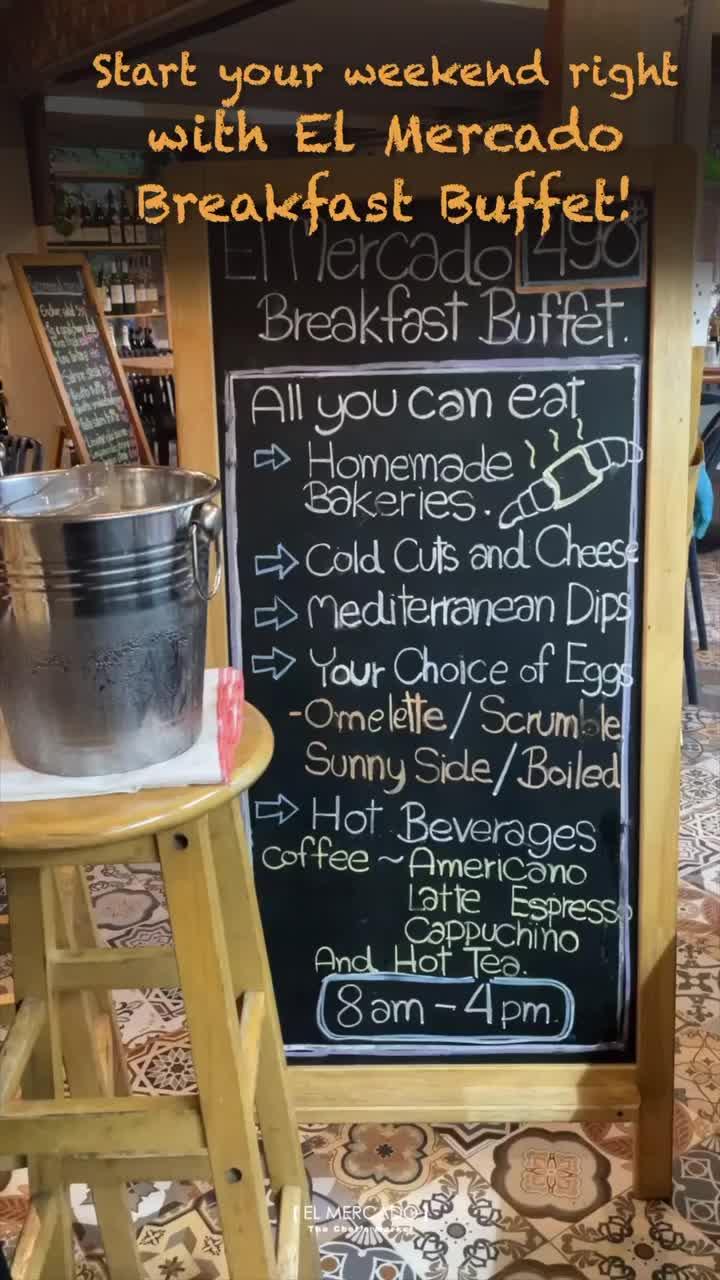 Start your weekend right
with El Mercado
Breakfast Buffet!
El Mercado 490
Breakfast Buffet.
All you can eat
Homemade
Bakeries.
Cold Cuts and Cheese
Mediterranean Dips
Your Choice of Eggs
-Omelette/Scrumble
Sunny Side/Boiled
Hot Beverages
Coffee ~ Americano
Latte Espresso
Cappuchino
And Hot Tea.
8am-4pm.
[EL MERCADO]
The Chef's Market